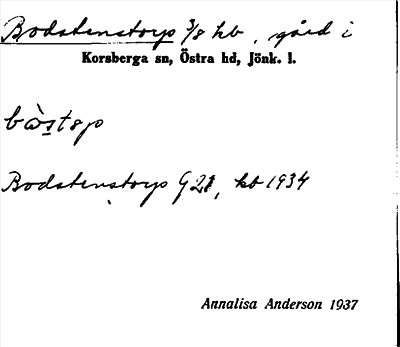 Bodstenstorp 3/8 hb, gård i
Korsberga sn, Östra hd, Jönk. l.
bὼstəp
Bodstenstorp G 21, kb 1934
Annalisa Anderson 1937